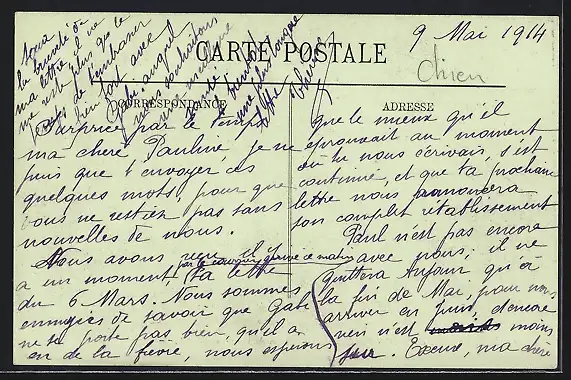 CARTE POSTALE
CORRESPONDANCE
ADRESSE
9 Mai 1914
chien
Surprise par le temps
ma chère Pauline, je ne
puis que t'envoyer ces
quelques mots, pour que
vous ne restiez pas sans
nouvelles de nous.
Nous avons reçu, il y
a un moment, par le courrier qui arrive ce matin, ta lettre
du 6 Mars. Nous sommes
ennuyés de savoir que Gabi
ne se porte pas bien, qu'il a
eu de la fièvre, nous espérons
que le mieux qu'il
éprouvait au moment
où tu nous écrivais, s'est
continué, et que ta prochaine
lettre nous annoncera
son complet rétablissement
Paul n'est pas encore
avec nous; il ne
quittera Anjou qu'à
la fin de Mai, pour nous
arriver en Juin, encore
rien n'est moins
sûr. Excuse, ma chère
la brièveté de
ma lettre, il ne
me reste plus que le
temps de t'embrasser
bien fort avec
Gabi auquel
nous souhaitons
une meilleure
santé
bientôt
une plus longue
lettre